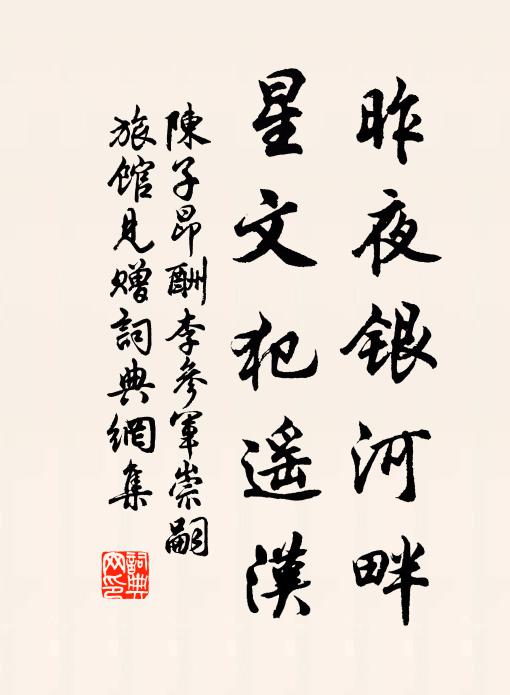 昨夜银河畔
星文犯遥漢
陳子昂酬李參軍崇嗣
旅館見贈詞典網集
詞典
网印